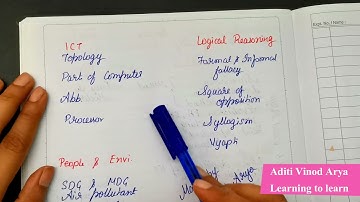 ICT
Topology
Part of Computer
Abb
Processor
People & Envi.
SDG & MDG
Air pollutant
Logical Reasoning
Formal & Informal
fallacy
Square of
opposition
Syllogism
Vyapti
Arya
Aditi Vinod Arya
Learning to learn